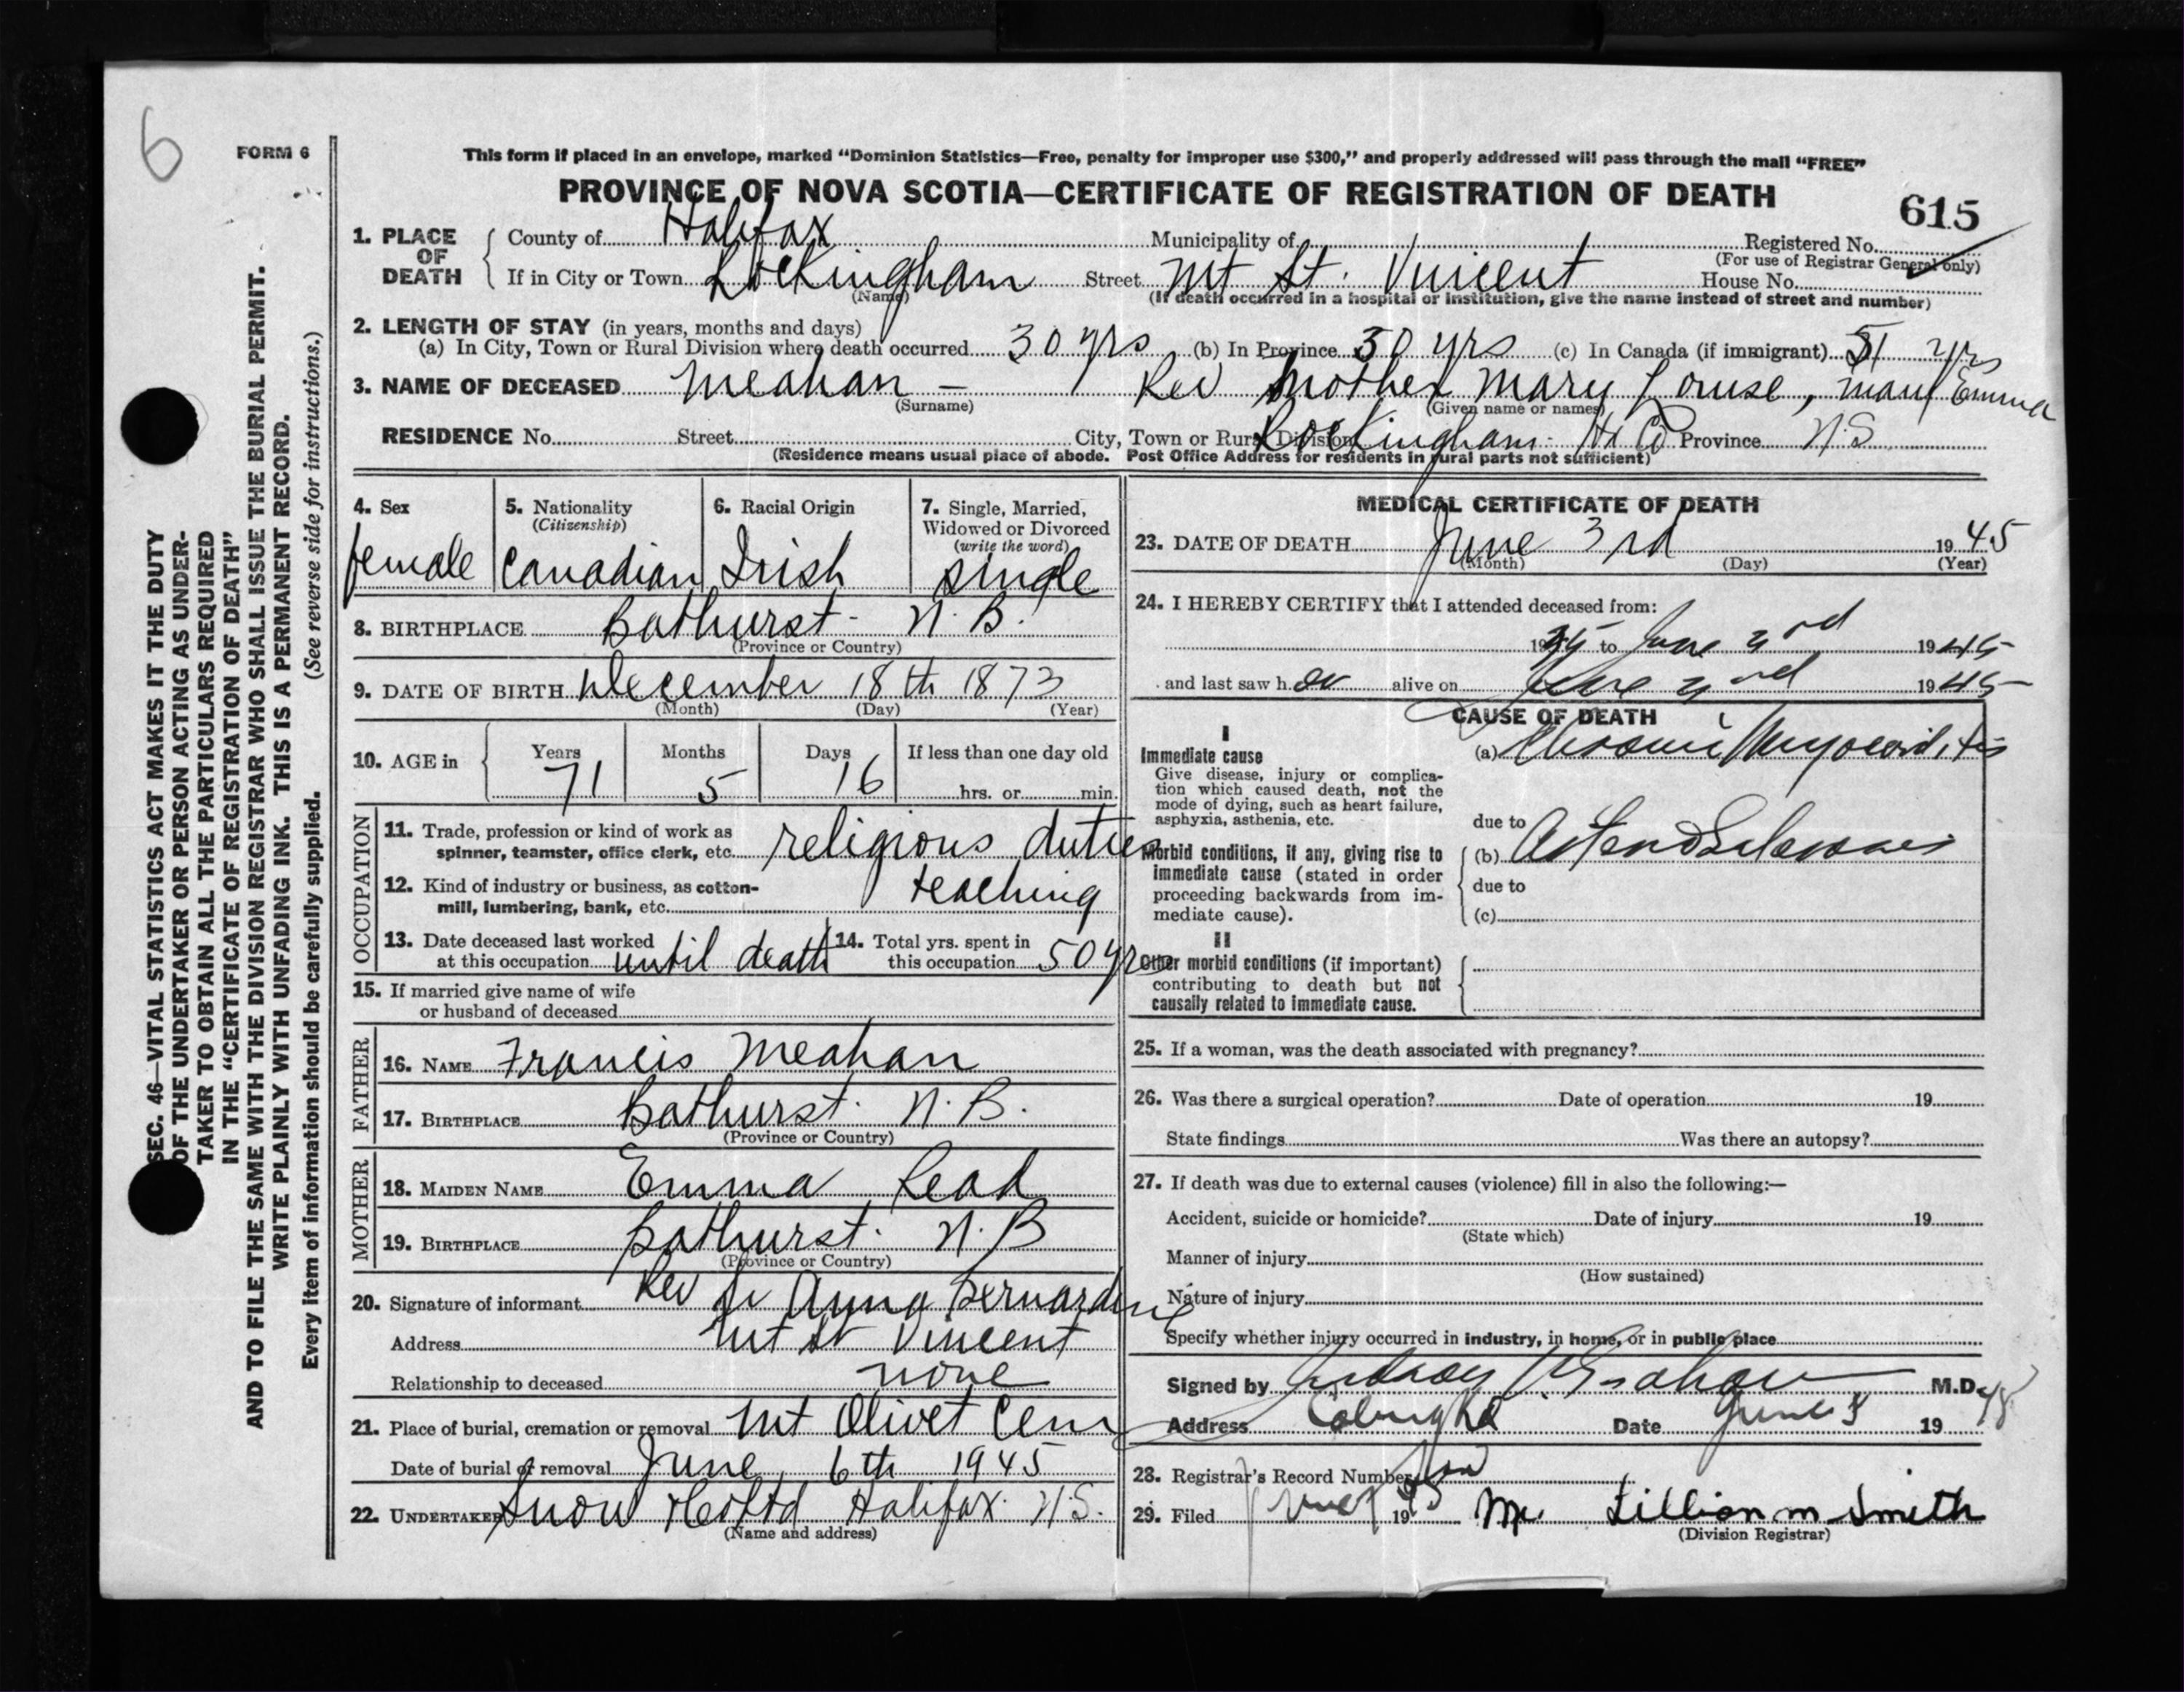 6
FORM 6
SEC. 46—VITAL STATISTICS ACT MAKES IT THE DUTY
OF THE UNDERTAKER OR PERSON ACTING AS UNDER-
TAKER TO OBTAIN ALL THE PARTICULARS REQUIRED
IN THE "CERTIFICATE OF REGISTRATION OF DEATH"
AND TO FILE THE SAME WITH THE DIVISION REGISTRAR WHO SHALL ISSUE THE BURIAL PERMIT.
WRITE PLAINLY WITH UNFADING INK. THIS IS A PERMANENT RECORD.
Every item of information should be carefully supplied. (See reverse side for instructions.)
This form if placed in an envelope, marked "Dominion Statistics—Free, penalty for improper use $300," and properly addressed will pass through the mail "FREE"
PROVINCE OF NOVA SCOTIA—CERTIFICATE OF REGISTRATION OF DEATH
615
1. PLACE OF DEATH County of Halifax Municipality of Registered No.
(For use of Registrar General only)
If in City or Town Rockingham Street Mt St. Vincent House No.
(Name) (If death occurred in a hospital or institution, give the name instead of street and number)
2. LENGTH OF STAY (in years, months and days)
(a) In City, Town or Rural Division where death occurred 30 yrs (b) In Province 50 yrs (c) In Canada (if immigrant) 51 yrs
3. NAME OF DECEASED Meahan – Rev Mother Mary Louise, Mary Emma
(Surname) (Given name or names)
RESIDENCE No. Street City, Town or Rural Division Rockingham - Hx Co Province N.S
(Residence means usual place of abode. Post Office Address for residents in rural parts not sufficient)
4. Sex 5. Nationality 6. Racial Origin 7. Single, Married,
(Citizenship) Widowed or Divorced
(write the word)
female Canadian Irish single
8. BIRTHPLACE Bathurst - N.B.
(Province or Country)
9. DATE OF BIRTH December 18th 1873
(Month) (Day) (Year)
10. AGE in Years Months Days If less than one day old
71 5 16 hrs. or min.
OCCUPATION
11. Trade, profession or kind of work as
spinner, teamster, office clerk, etc. religious duties
12. Kind of industry or business, as cotton-
mill, lumbering, bank, etc. teaching
13. Date deceased last worked
at this occupation until death
14. Total yrs. spent in
this occupation 50 yrs
15. If married give name of wife
or husband of deceased
FATHER
16. NAME Francis Meahan
17. BIRTHPLACE Bathurst. N.B.
(Province or Country)
MOTHER
18. MAIDEN NAME Emma Read
19. BIRTHPLACE Bathurst. N.B
(Province or Country)
20. Signature of informant Rev Sr Anna Bernardine
Address Mt St Vincent
Relationship to deceased none
21. Place of burial, cremation or removal Mt Olivet Cem
Date of burial or removal June 6th 1945
22. UNDERTAKER Snow Halifax. N.S.
(Name and address)
MEDICAL CERTIFICATE OF DEATH
23. DATE OF DEATH June 3rd 1945
(Month) (Day) (Year)
24. I HEREBY CERTIFY that I attended deceased from:
19 to June 2nd 1945
and last saw h er alive on June 2nd 1945
CAUSE OF DEATH
I
Immediate cause
Give disease, injury or complica-
tion which caused death, not the
mode of dying, such as heart failure,
asphyxia, asthenia, etc.
(a) Chronic Myocarditis
due to
Morbid conditions, if any, giving rise to
immediate cause (stated in order
proceeding backwards from im-
mediate cause).
(b) Arteriosclerosis
due to
(c)
II
Other morbid conditions (if important)
contributing to death but not
causally related to immediate cause.
25. If a woman, was the death associated with pregnancy?
26. Was there a surgical operation? Date of operation 19
State findings Was there an autopsy?
27. If death was due to external causes (violence) fill in also the following:—
Accident, suicide or homicide? Date of injury 19
(State which)
Manner of injury
(How sustained)
Nature of injury
Specify whether injury occurred in industry, in home, or in public place
Signed by M.D.
Address Coburg Rd Date June 5 19 45
28. Registrar's Record Number
29. Filed 19 Lillian M Smith
(Division Registrar)